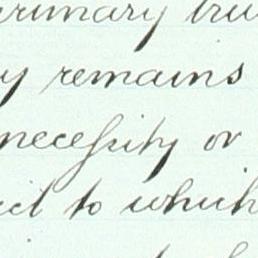 primary tru
y remains
necessity or
ect to which